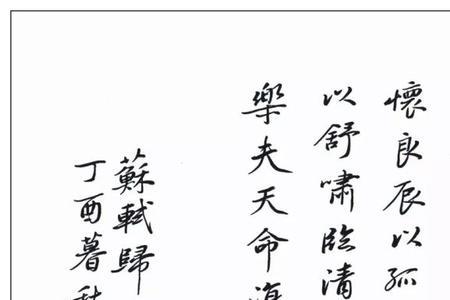 懷良辰以孤
以舒嘯臨清
樂夫天命
蘇軾歸
丁酉暮秋